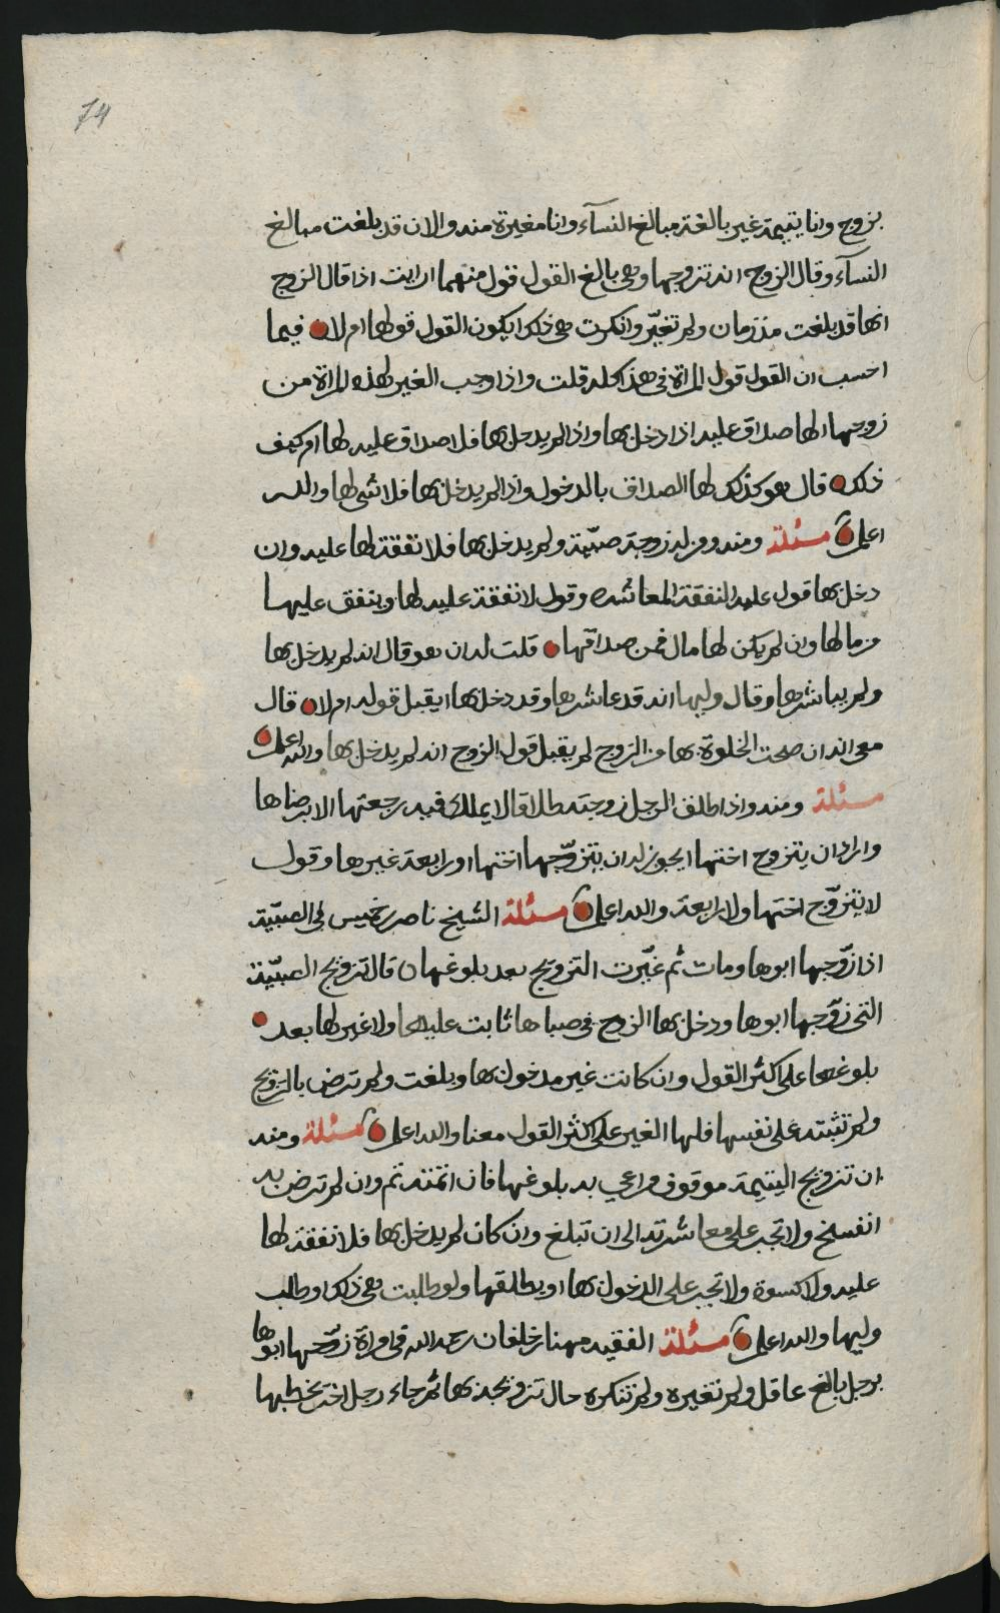 74
بزوج وانا يتيمة غير بالغة مبالغ النسآء وانا مغيرة منه والان قد بلغت مبالغ
النسآء وقال الزوج انه تزوجها وهي بالغ القول قول منهما ارايت اذا قال الزوج
انها قد بلغت منذ زمان ولم تغيّر وانكرت هي ذلك ايكون القول قولها ام لا ن فيما
احسب ان القول قول المراة في هذا كله قلت واذا وجب الغير لهذه المراة من
زوجها الها صداق عليه اذا دخل بها واذا لم يدخل بها فلا صداق عليه لها ام كيف
ذلك ن قال هو كذلك لها الصداق بالدخول واذا لم يدخل بها فلا شي لها والله
اعلم ن مسئلة ومنه ومن له زوجة صبيّة ولم يدخل بها فلا نفقة لها عليه وان
دخل بها قول عليه النفقة لمعاشرته وقول لا نفقة عليه لها وينفق عليها
من مالها وان لم يكن لها مال فمن صداقها ن قلت له ان هو قال انه لم يدخل بها
ولم يباشرها وقال وليها انه قد عاشرها وقد دخل بها ايقبل قوله ام لا ن قال
معي انه ان صحت الخلوة بها من الزوج لم يقبل قول الزوج انه لم يدخل بها والله اعلم ن
مسئلة ومنه واذا طلق الرجل زوجته طلاقا لا يملك فيه رجعتها الا برضاها
واراد ان يتزوج اختها ايجوز له ان يتزوّجها اختها او رابعة غيرها وقول
لا يتزوّج اختها ولا رابعة والله اعلم ن مسئلة الشيخ ناصر بن خميس في الصبيّة
اذا زوّجها ابوها ومات ثم غيّرت التزويج بعد بلوغها ن قال تزويج الصبيّة
التي زوّجها ابوها ودخل بها الزوج في صباها ثابت عليها ولا غير لها بعد ن
بلوغها على اكثر القول وان كانت غير مدخول بها وبلغت ولم ترض بالتزويج
ولم تثبته على نفسها فلها الغير على اكثر القول معنا والله اعلم ن مسئلة ومنه
ان تزويج اليتيمة موقوف مراعي به بلوغها فان اتمته تم وان لم ترض به
انفسخ ولا تجبر على معاشرته الى ان تبلغ وان كان لم يدخل بها فلا نفقة لها
عليه ولا كسوة ولا تجبر على الدخول بها او يطلقها ولو طلبت هي ذلك او طلب
وليها والله اعلم ن مسئلة الفقيه مهنا بن خلفان رحمه الله في مراة زوّجها ابوها
برجل بالغ عاقل ولم تغيره ولم تنكره حال تزويجه بها ثم جاء رجل اخر يخطبها